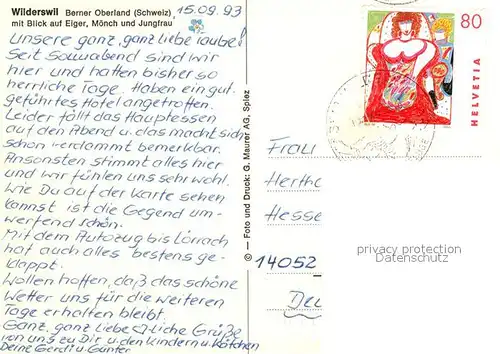 Wilderswil Berner Oberland (Schweiz)
mit Blick auf Eiger, Mönch und Jungfrau
15.09.93
Unsere ganz, ganz liebe Taube!
Seit Sonnabend sind wir
hier und hatten bisher so
herrliche Tage. Haben ein gut
geführtes Hotel angetroffen.
Leider fällt das Hauptessen
auf den Abend u. das macht sich
schon verdammt bemerkbar.
Ansonsten stimmt alles hier
und wir fühlen uns sehr wohl.
Wie Du auf der Karte sehen
kannst ist die Gegend um-
werfend schön.
Mit dem Autozug bis Lörrach
hat auch alles bestens ge-
klappt.
Wollen hoffen, daß das schöne
Wetter uns für die weiteren
Tage erhalten bleibt.
Ganz, ganz liebe Grüße
von uns zu Dir u. den Kindern u. Kätzchen
Deine Gerdi u. Günter
© — Foto und Druck: G. Maurer AG, Spiez
80
HELVETIA
Frau
Hertha
Hesse
14052
privacy protection
Datenschutz